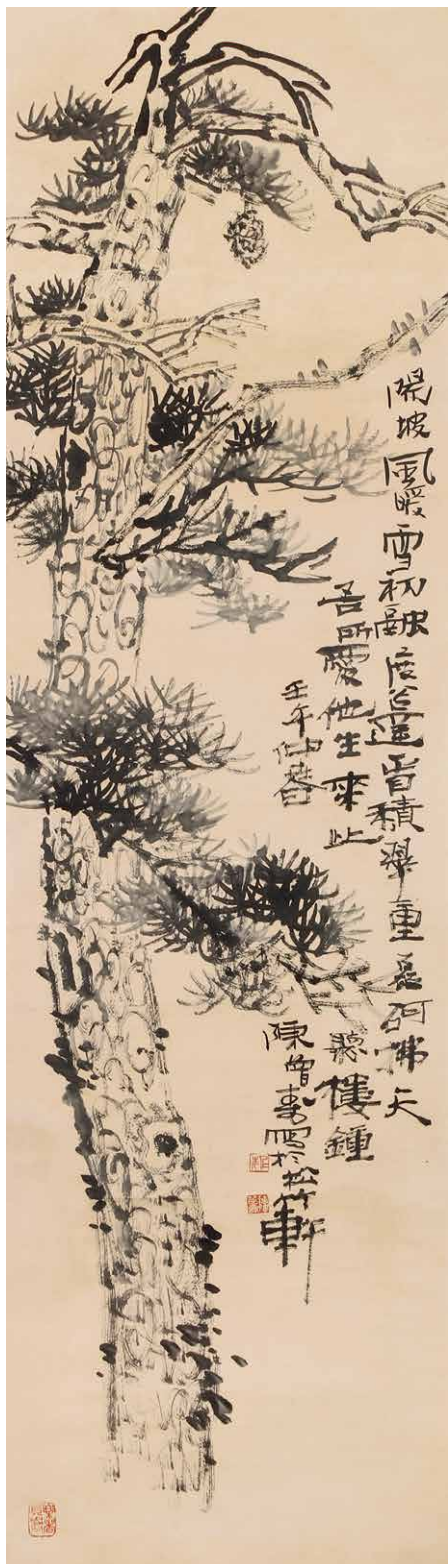 陽坡風暖雪初融度谷遥看積翠重磊砢拂天
吾所愛他生來此聽樓鍾
壬午仲春
陳曾壽寫於松竹軒